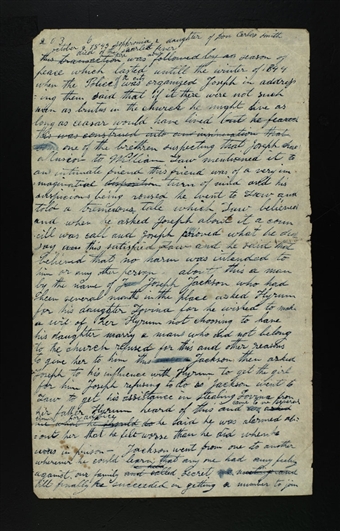 203 6
october 8 1843 Sophronia C daughter of Don Carlos Smith
died of the scarlet fever
This transaction was followed by a season of
peace which lasted untill the winter of 1843
when the Police was organised Joseph in address
ing them said that if it there were not such
man as brutus in the church he might live as
long as ceasar would have lived but he feared
this was construed into an
one of the brethren suspecting that Joseph
to William Law mentioned it to
an intimate friend this friend was of a very im-
maginative disposition turn of mind and his
suspicions being roused he went to Law and
told a tremendous tale which Law believed
and when he asked Joseph about it a coun
cill was call and Joseph proved what he did
say was this satisfied Law and he said that
believed that no harm was intended to
him or any other person about this a man
by the name of Joseph Jackson who had
been several months in the place asked Hyrum
for his daughter Lovina for he wished to make
a wife of her Hyrum not choosing to have
his daughter marry a man who did not belong
to the church refused for this and other reasons
to give her to him this Jackson then asked
Joseph to his influence with Hyrum to get the girl
for him Joseph refusing to do so Jackson went to
Law to get his assistance in stealing Lovina from
her father Hyrum heard of this and came to
he said he was alarmed ab-
out her that he felt worse than he did when he
was in prison — Jackson went from one to another
wherever he could learn that any one had any feeling
against our family and secret
till finally he succeeded in getting a number to join